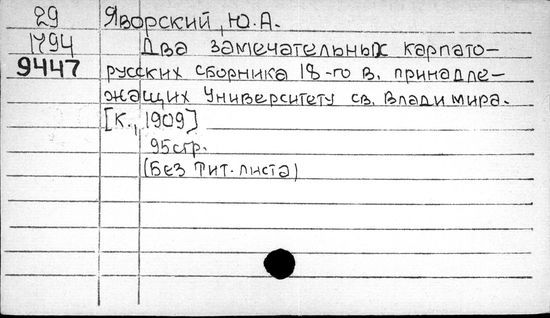 29 Яворский, Ю.А.
1794 Два замечательных карпато-
9447 русских сборника 18-го в. принадле-
жащих Университету св. Владимира.
[К., 1909]
95стр.
(Без тит. листа)